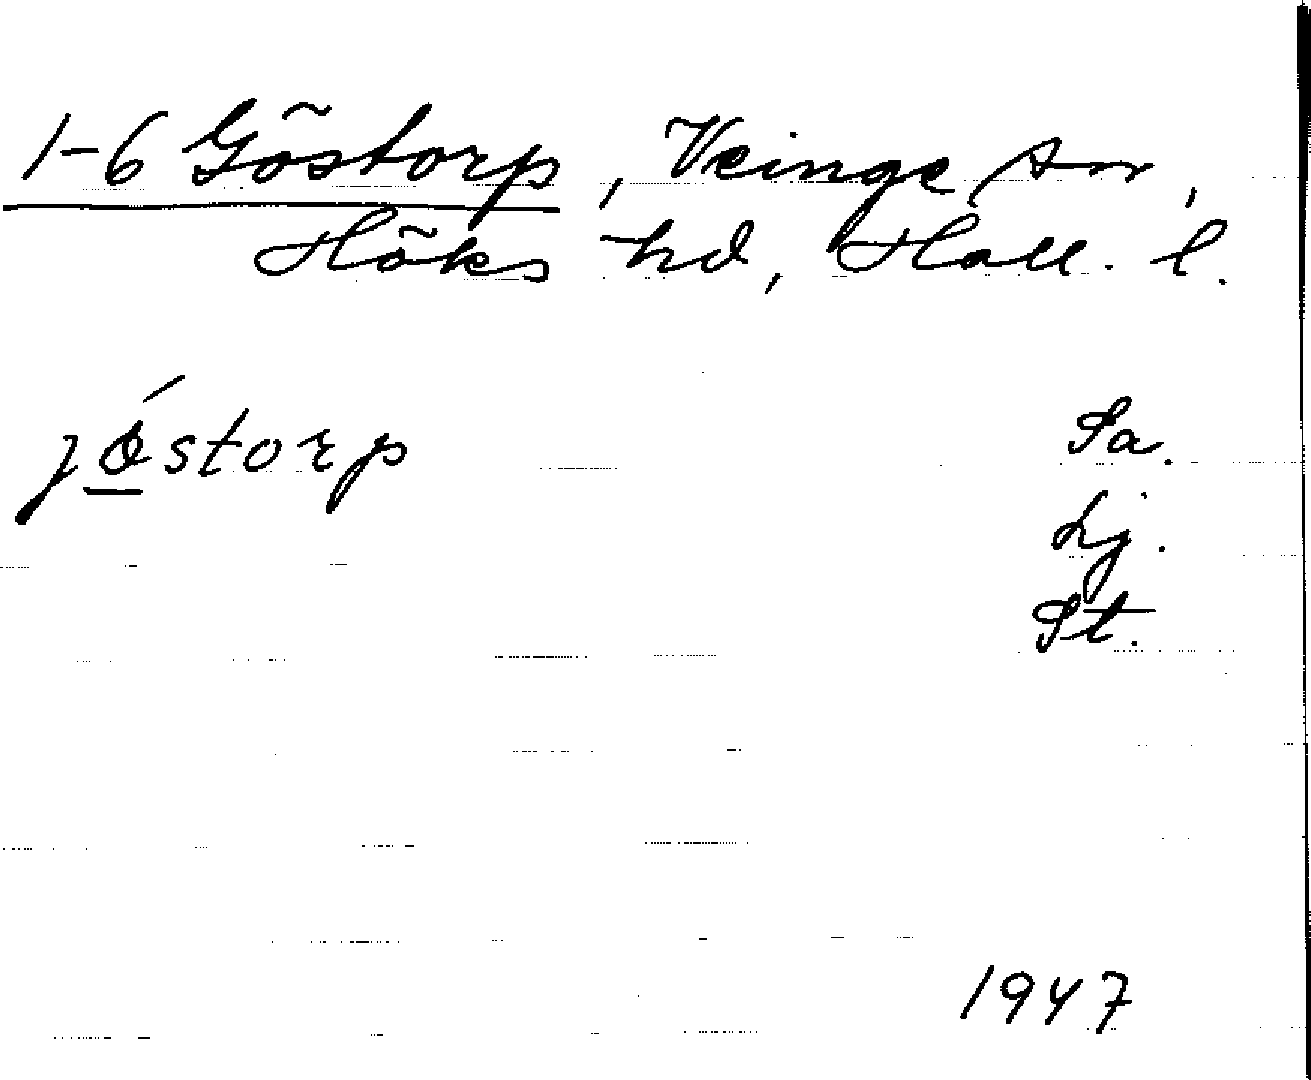 1-6 Göstorp, Veinge sn,
Höks hd, Hall. l.
jǿ̲storp
Sa.
Lj.
St.
1947